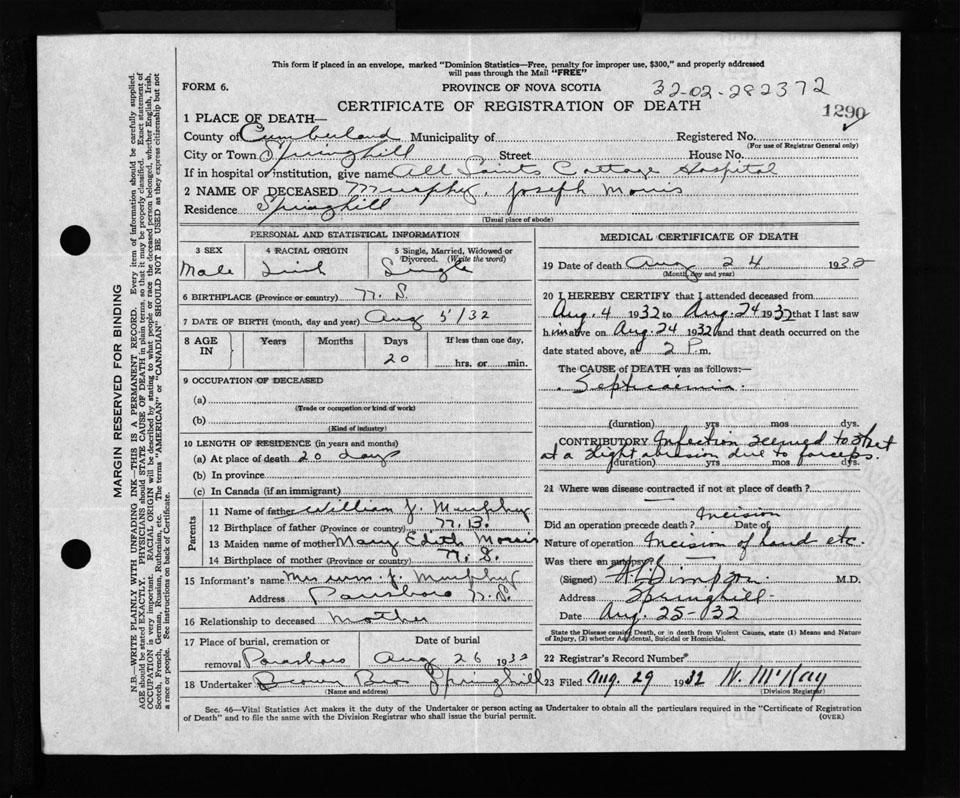 This form if placed in an envelope, marked "Dominion Statistics—Free, penalty for improper use, $300," and properly addressed
will pass through the Mail "FREE"
FORM 6.
PROVINCE OF NOVA SCOTIA
32-02-282372
CERTIFICATE OF REGISTRATION OF DEATH
1290
1 PLACE OF DEATH—
County of Cumberland Municipality of Registered No.
(For use of Registrar General only)
City or Town Springhill Street House No.
If in hospital or institution, give name All Saints Cottage Hospital
2 NAME OF DECEASED Murphy, Joseph Morris
Residence Springhill
(Usual place of abode)
MARGIN RESERVED FOR BINDING
N.B.—WRITE PLAINLY WITH UNFADING INK—THIS IS A PERMANENT RECORD. Every item of information should be carefully supplied.
AGE should be stated EXACTLY. PHYSICIANS should STATE CAUSE OF DEATH in plain terms, so that it may be properly classified. Exact statement of
OCCUPATION is very important. RACIAL ORIGIN will be described by stating to what people or race the deceased person belonged, whether English, Irish,
Scotch, French, German, Russian, Ruthenian, etc. The terms "AMERICAN" or "CANADIAN" SHOULD NOT BE USED as they express citizenship but not
a race or people. See instructions on back of Certificate.
PERSONAL AND STATISTICAL INFORMATION
3 SEX 4 RACIAL ORIGIN 5 Single, Married, Widowed or
Divorced. (Write the word)
Male Irish Single
6 BIRTHPLACE (Province or country) N. S.
7 DATE OF BIRTH (month, day and year) Aug 5/32
8 AGE IN Years Months Days If less than one day,
20 hrs. or min.
9 OCCUPATION OF DECEASED
(a)
(Trade or occupation or kind of work)
(b)
(Kind of industry)
10 LENGTH OF RESIDENCE (in years and months)
(a) At place of death 20 days
(b) In province
(c) In Canada (if an immigrant)
Parents
11 Name of father William J. Murphy
12 Birthplace of father (Province or country) N. B.
13 Maiden name of mother Mary Edith Morris
14 Birthplace of mother (Province or country) N. S.
15 Informant's name Mrs Wm. J. Murphy
Address Parrsboro N.S.
16 Relationship to deceased Mother
17 Place of burial, cremation or Date of burial
removal Parrsboro Aug 26 1932
18 Undertaker Brown Bros Springhill
(Name and address)
MEDICAL CERTIFICATE OF DEATH
19 Date of death Aug 24 1932
(Month, day and year)
20 I HEREBY CERTIFY that I attended deceased from
Aug. 4 1932 to Aug. 24 1932 that I last saw
him alive on Aug. 24 1932 and that death occurred on
date stated above, at 2 P.m.
The CAUSE of DEATH was as follows:—
Septicaemia.
(duration) yrs mos dys.
CONTRIBUTORY Infection seemed to start
at a slight abrasion due to forceps.
(duration) yrs mos dys.
21 Where was disease contracted if not at place of death?
Did an operation precede death? Incision Date of
Nature of operation Incision of hand etc.
Was there an autopsy?
(Signed) Simpson. M.D.
Address Springhill
Date Aug. 25-32
State the Disease causing Death, or in death from Violent Causes, state (1) Means and Nature
of Injury, (2) whether Accidental, Suicidal or Homicidal.
22 Registrar's Record Number
23 Filed Aug. 29 1932 N. McKay
(Division Registrar)
Sec. 46—Vital Statistics Act makes it the duty of the Undertaker or person acting as Undertaker to obtain all the particulars required in the "Certificate of Registration
of Death" and to file the same with the Division Registrar who shall issue the burial permit.
(OVER)